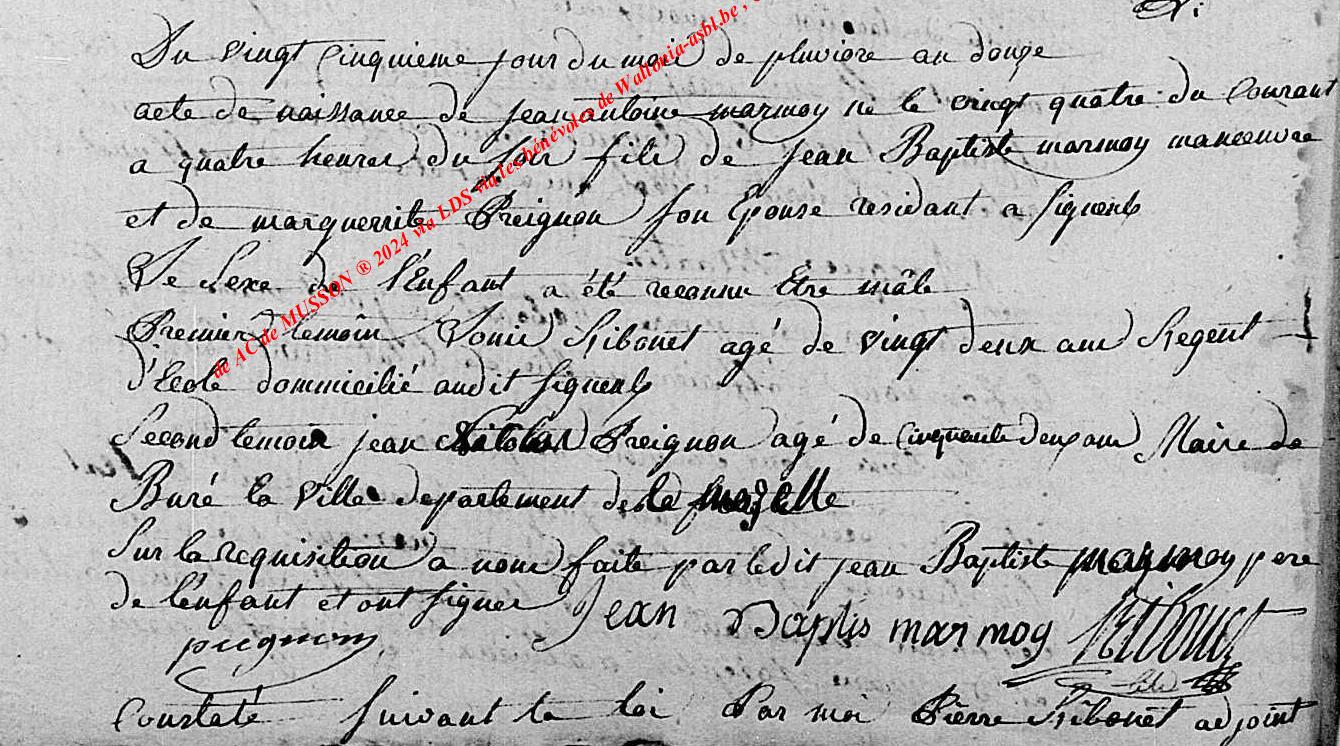 Du vingt cinquieme jour du mois de pluviose an douze
acte de naissance de jean antoine marmoy né le vingt quatre du Courant
a quatre heures du soir fils de jean Baptiste marmoy manoeuvre
et de marguerrite Preignon son Epouse residant a Signeulx
Le Sexe de l'Enfant a été reconnu Etre mâle
Premier temoin Louis Ribonet agé de vingt deux ans Regent
d'Ecole dommicilié audit Signeulx
Second temoin jean Nicolas Preignon agé de Cinquante deux ans Maire de
Buré la Ville departement de la mozelle
Sur la requisition a nous faite par ledit jean Baptiste marmoy pere
de l'enfant et ont signer Jean Baptis marmoy Ribonet
pregnon
Constaté suivant la loi Par moi Pierre Ribonet adjoint
de AC de MUSSON ® 2024 via LDS via les bénévoles de Wallonia-asbl.be,